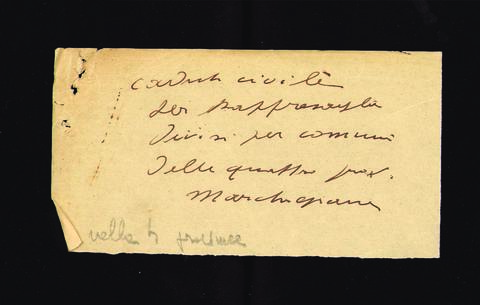 caduti civili
per rappresaglia
divisi per comuni
delle quattro prov.
Marchigiane
nella provincia